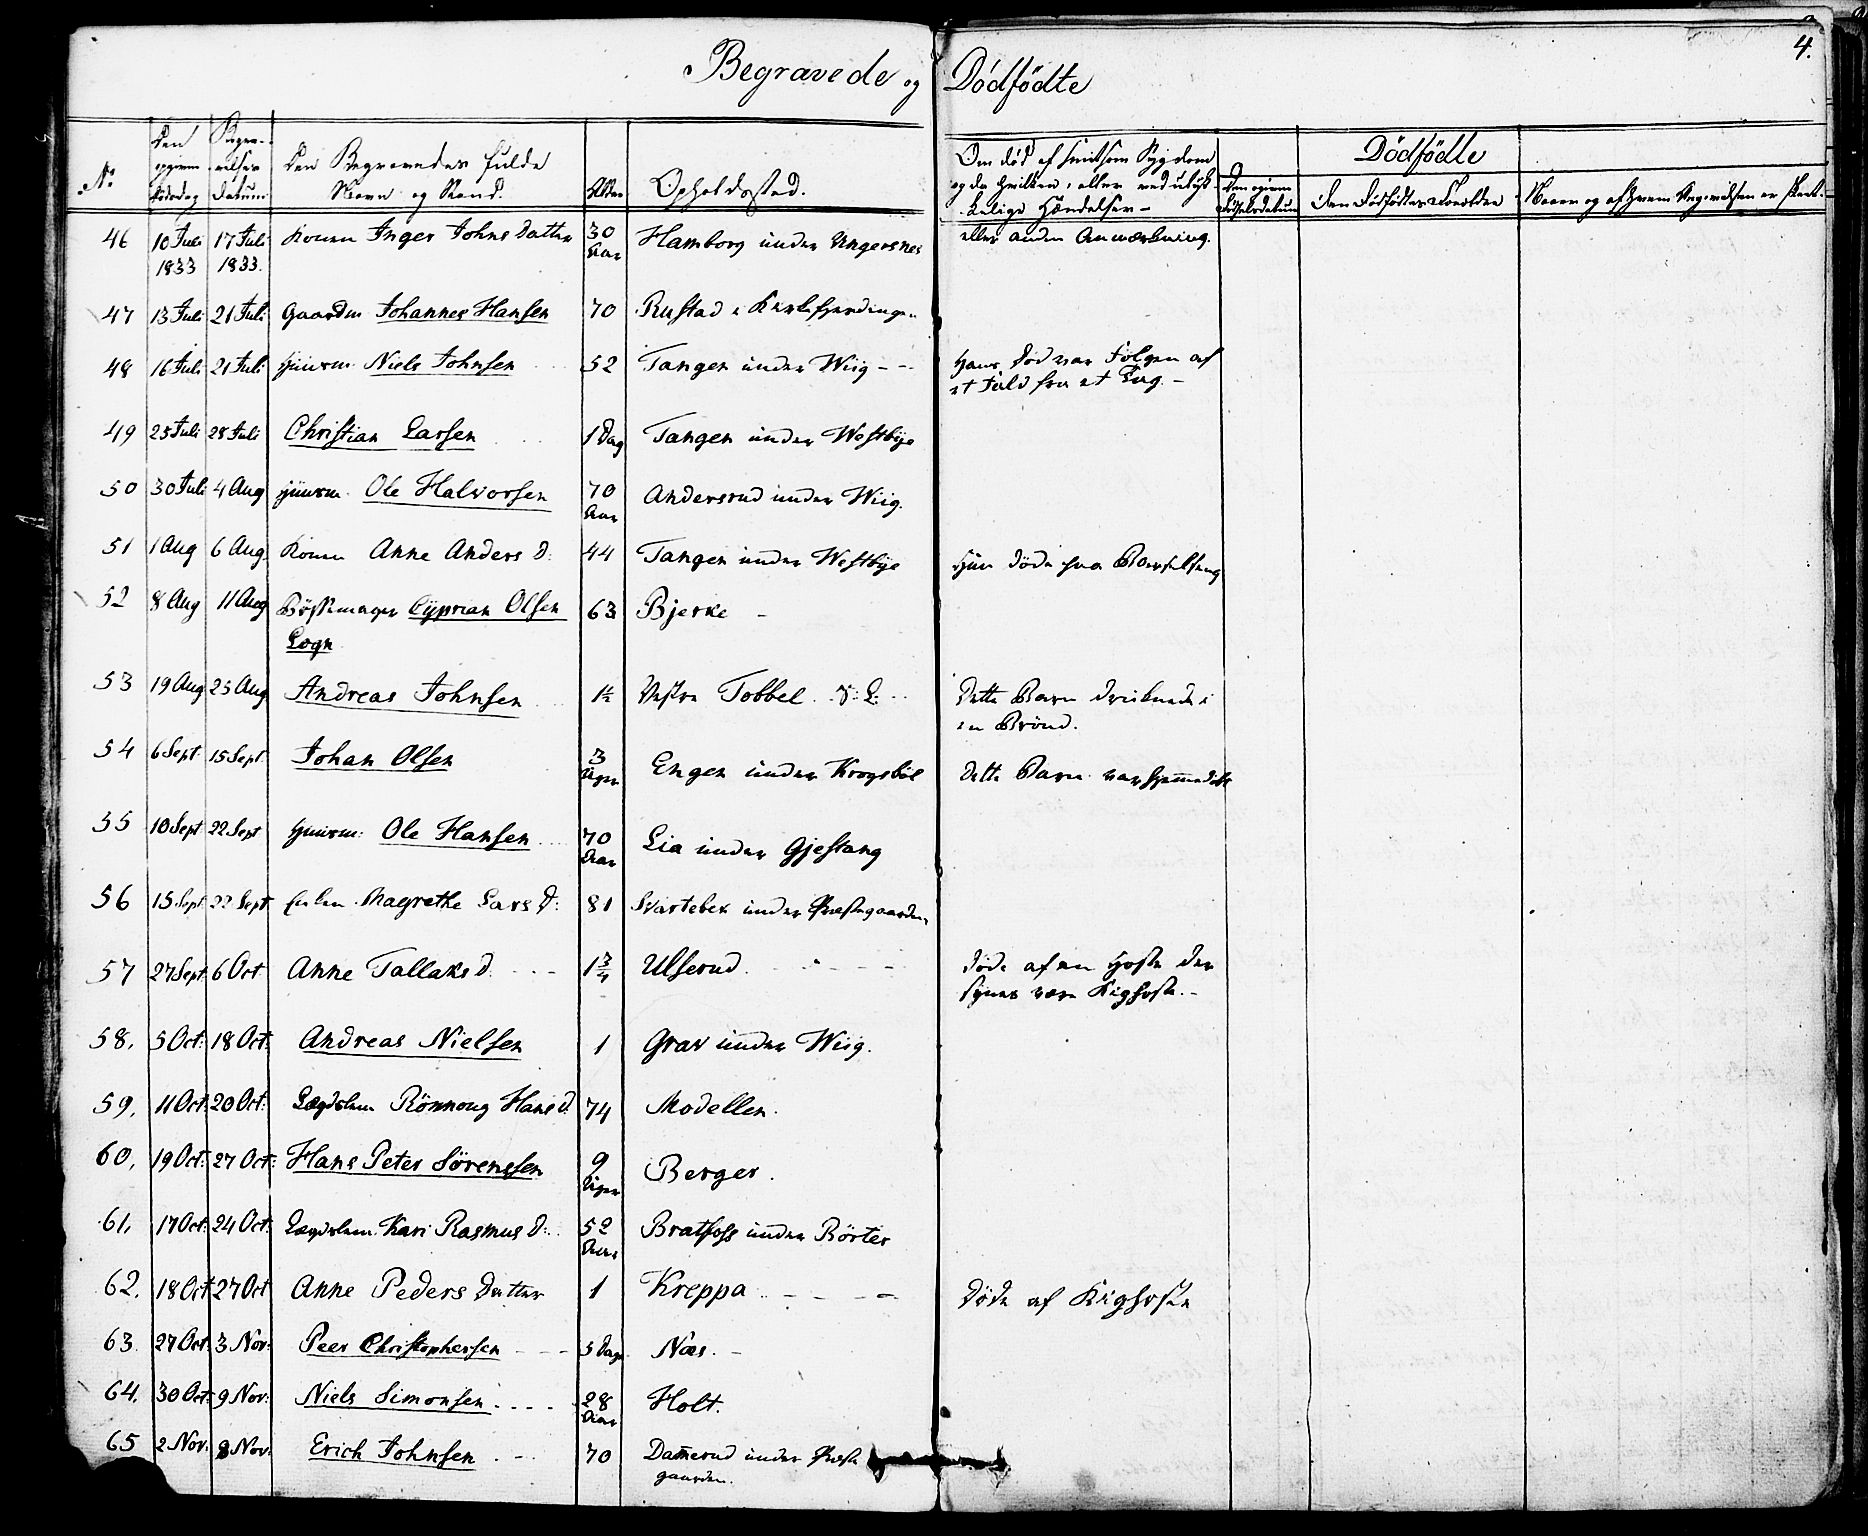 4.
Begravede og Dödfödte
No
Den opgivne Dödsdag
Begravelses Datum
Den Begravedes fulde Navn og Stand.
Alder
Opholdssted.
Om död af smitsom Sygdom
og da hvilken, eller ved ulyk-
kelige Hændelser –
eller anden Anmærkning.
Dödfödte
Den opgivne Födselsdatum
Den Dödfödtes Forældre
Navn og af hvem Angivelsen er skeet.
46 10 Juli 1833 17 Juli 1833. Konen Inger Johns Datter 30 Aar Hamborg under Ungersnes
47 13 Juli 21 Juli Gaardm Johannes Hansen 70 Rustad i
48 16 Juli 21 Juli Huusm. Niels Johnsen 52 Tangen under Wiig - - Hans Död var Fölgen af
et Fald fra et Tag. –
49 25 Juli 28 Juli Christian Larsen 1 Dag Tangen under Westbye
50 30 Juli 4 Aug Huusm. Ole Halvorsen 70 Aar Andersrud under Wiig.
51 1 Aug 6 Aug. Konen Anne Anders d: 44 Tangen under Westbye Hun döde paa Barselseng
52 8 Aug 11 Aug Bössemager Cyprian Olsen 63 Bjerke –
Logn
53 19 Aug 25 Aug Andreas Johnsen 1½ Vestre Tobbel Dette Barn druknede i
en Brönd.
54 6 Sept. 15 Sept. Johan Olsen 3 Uger Engen under Krogsböl Dette Barn var hjemmedöbt
55 10 Sept 22 Sept Huusm: Ole Hansen 70 Aar Lia under Gjestang
56 15 Sept 22 Sept Enken Magrethe Lars d: 81 Svartebek under Præstegaarden
57 27 Sept. 6 Oct Anne Tallaks d. 1¾ Ulserud Döde af en Hoste der
synes være Kighoste. –
58. 5 Oct: 18 Oct: Andreas Nielsen 1 Grav under Wiig.
59. 11 Oct: 20 Oct: Lægdslem Rönnoug Hans d. 74 Modellen.
60. 19 Oct: 27 Oct: Hans Peter Sörenssen 9 Uger Berger.
61. 17 Oct: 24 Oct: Lægdslem Kari Rasmus d: 52 Aar Bratfoss under Börter
62. 18 Oct 27 Oct Anne Peders Datter 1 Kreppa Döde af Kighoste
63. 27 Oct 3 Nov: Peer Christophersen 5 Dage Næs. –
64. 30 Oct: 9 Nov: Niels Simonsen 28 Aar Holt.
65 2 Nov: 8 Nov: Erich Johnsen 70 Damerud under Præste
gaarden.